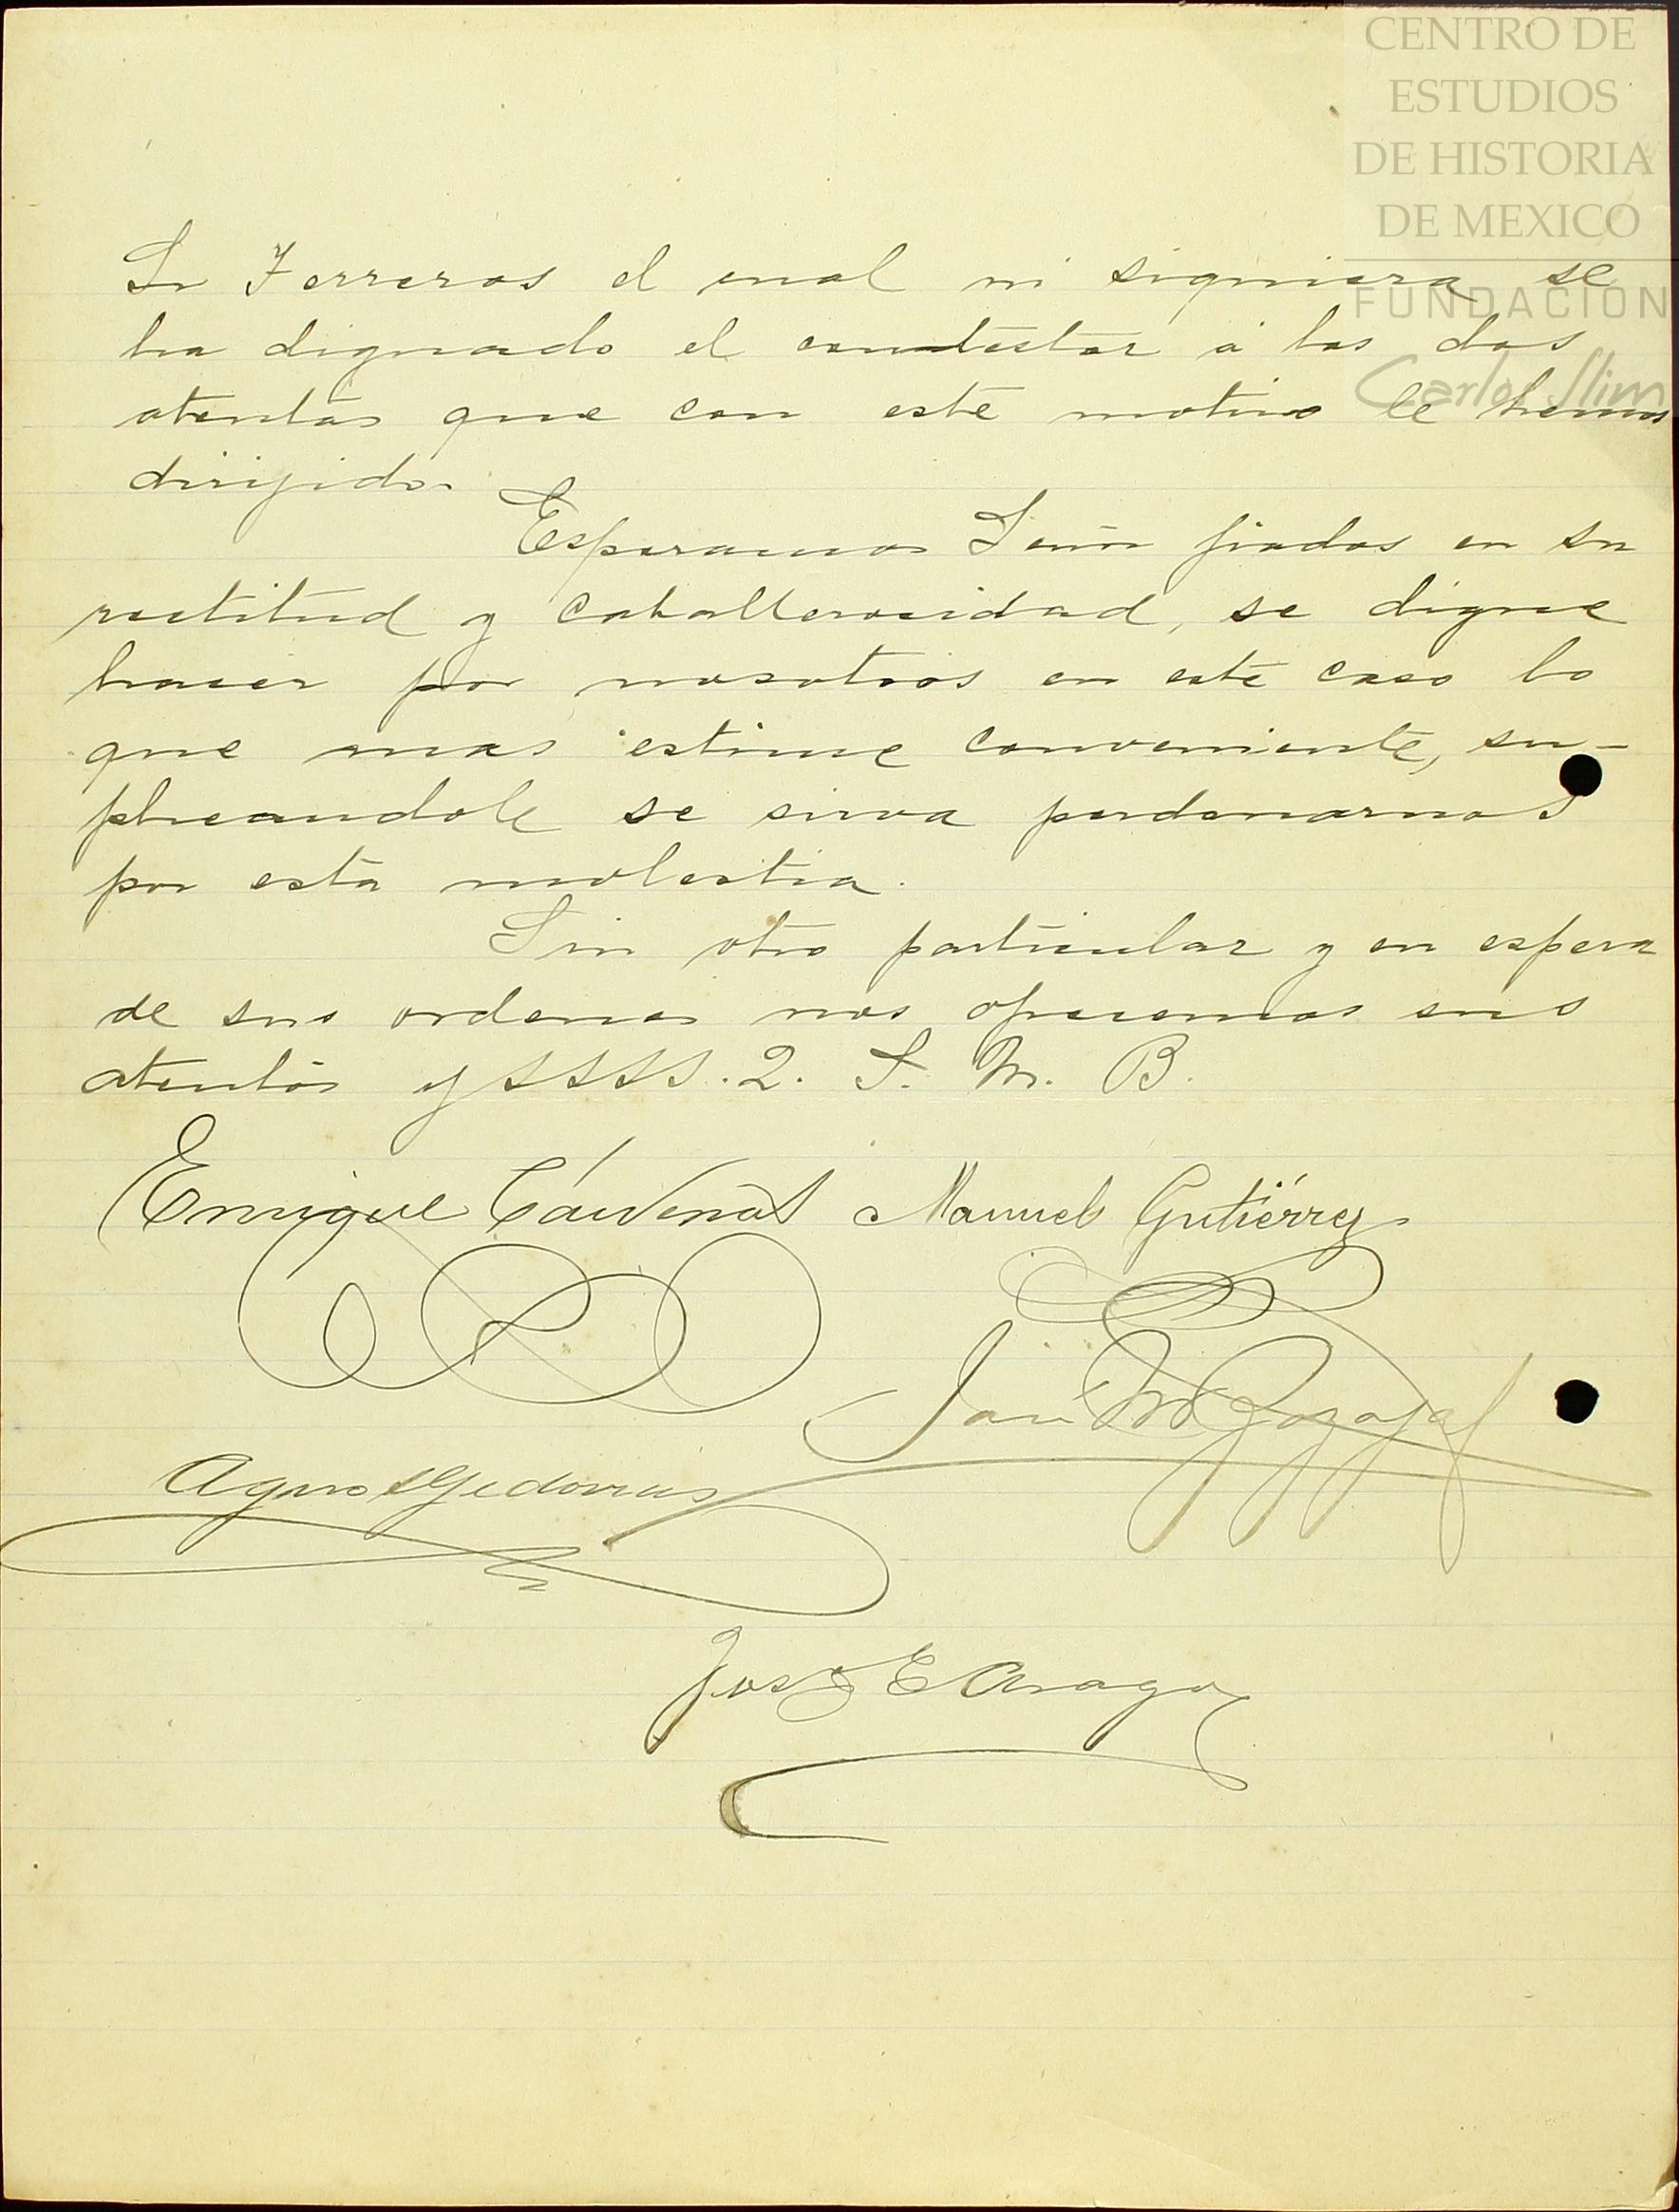 CENTRO DE
ESTUDIOS
DE HISTORIA
DE MEXICO
FUNDACION
Carlos Slim
Sr Ferreros el cual ni siquiera se
ha dignado el contestar á las dos
atentas que con este motivo le hemos
dirigido.
Esperamos Señor fiados en su
rectitud y caballerosidad, se digne
hacer por nosotros en este caso lo
que mas estime conveniente, su-
plicandole se sirva perdonarnos
por esta molestia.
Sin otro particular y en espera
de sus ordenes nos ofrecemos sus
atentos y SSSS. Q. S. M. B.
Enrique Cárdenas Manuel Gutiérrez
José M
José E Arago